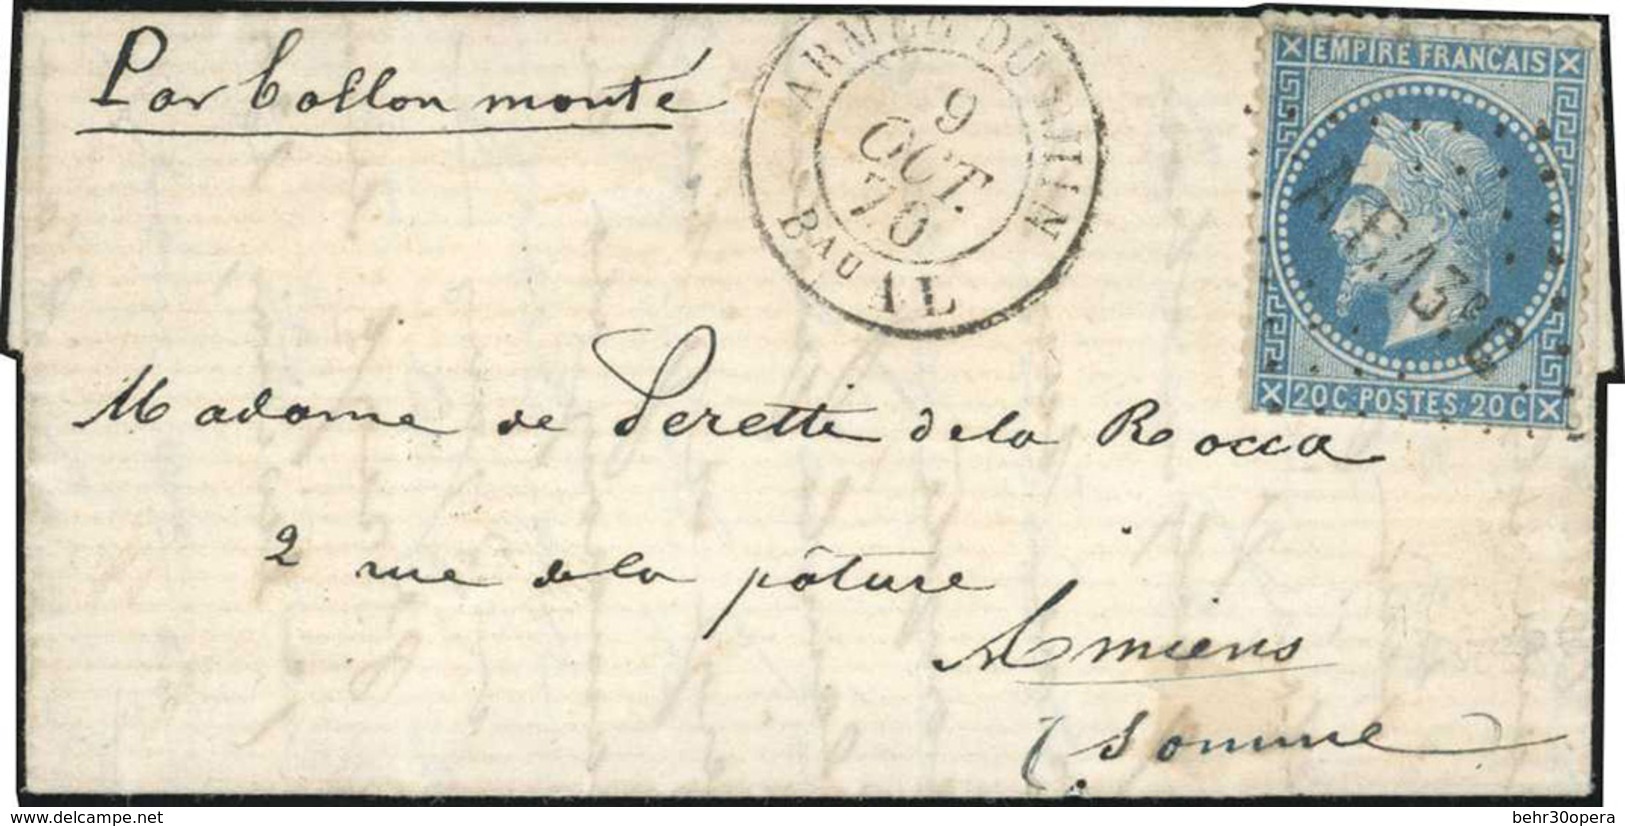 Par ballon monté
ARMÉE DU RHIN
9
OCT.
70
BAU AL
EMPIRE FRANÇAIS
20 C·POSTES·20 C
Madame de Peretti de la Rocca
2 rue de la pâture
Amiens
(Somme
delcampe.net
behr30opera